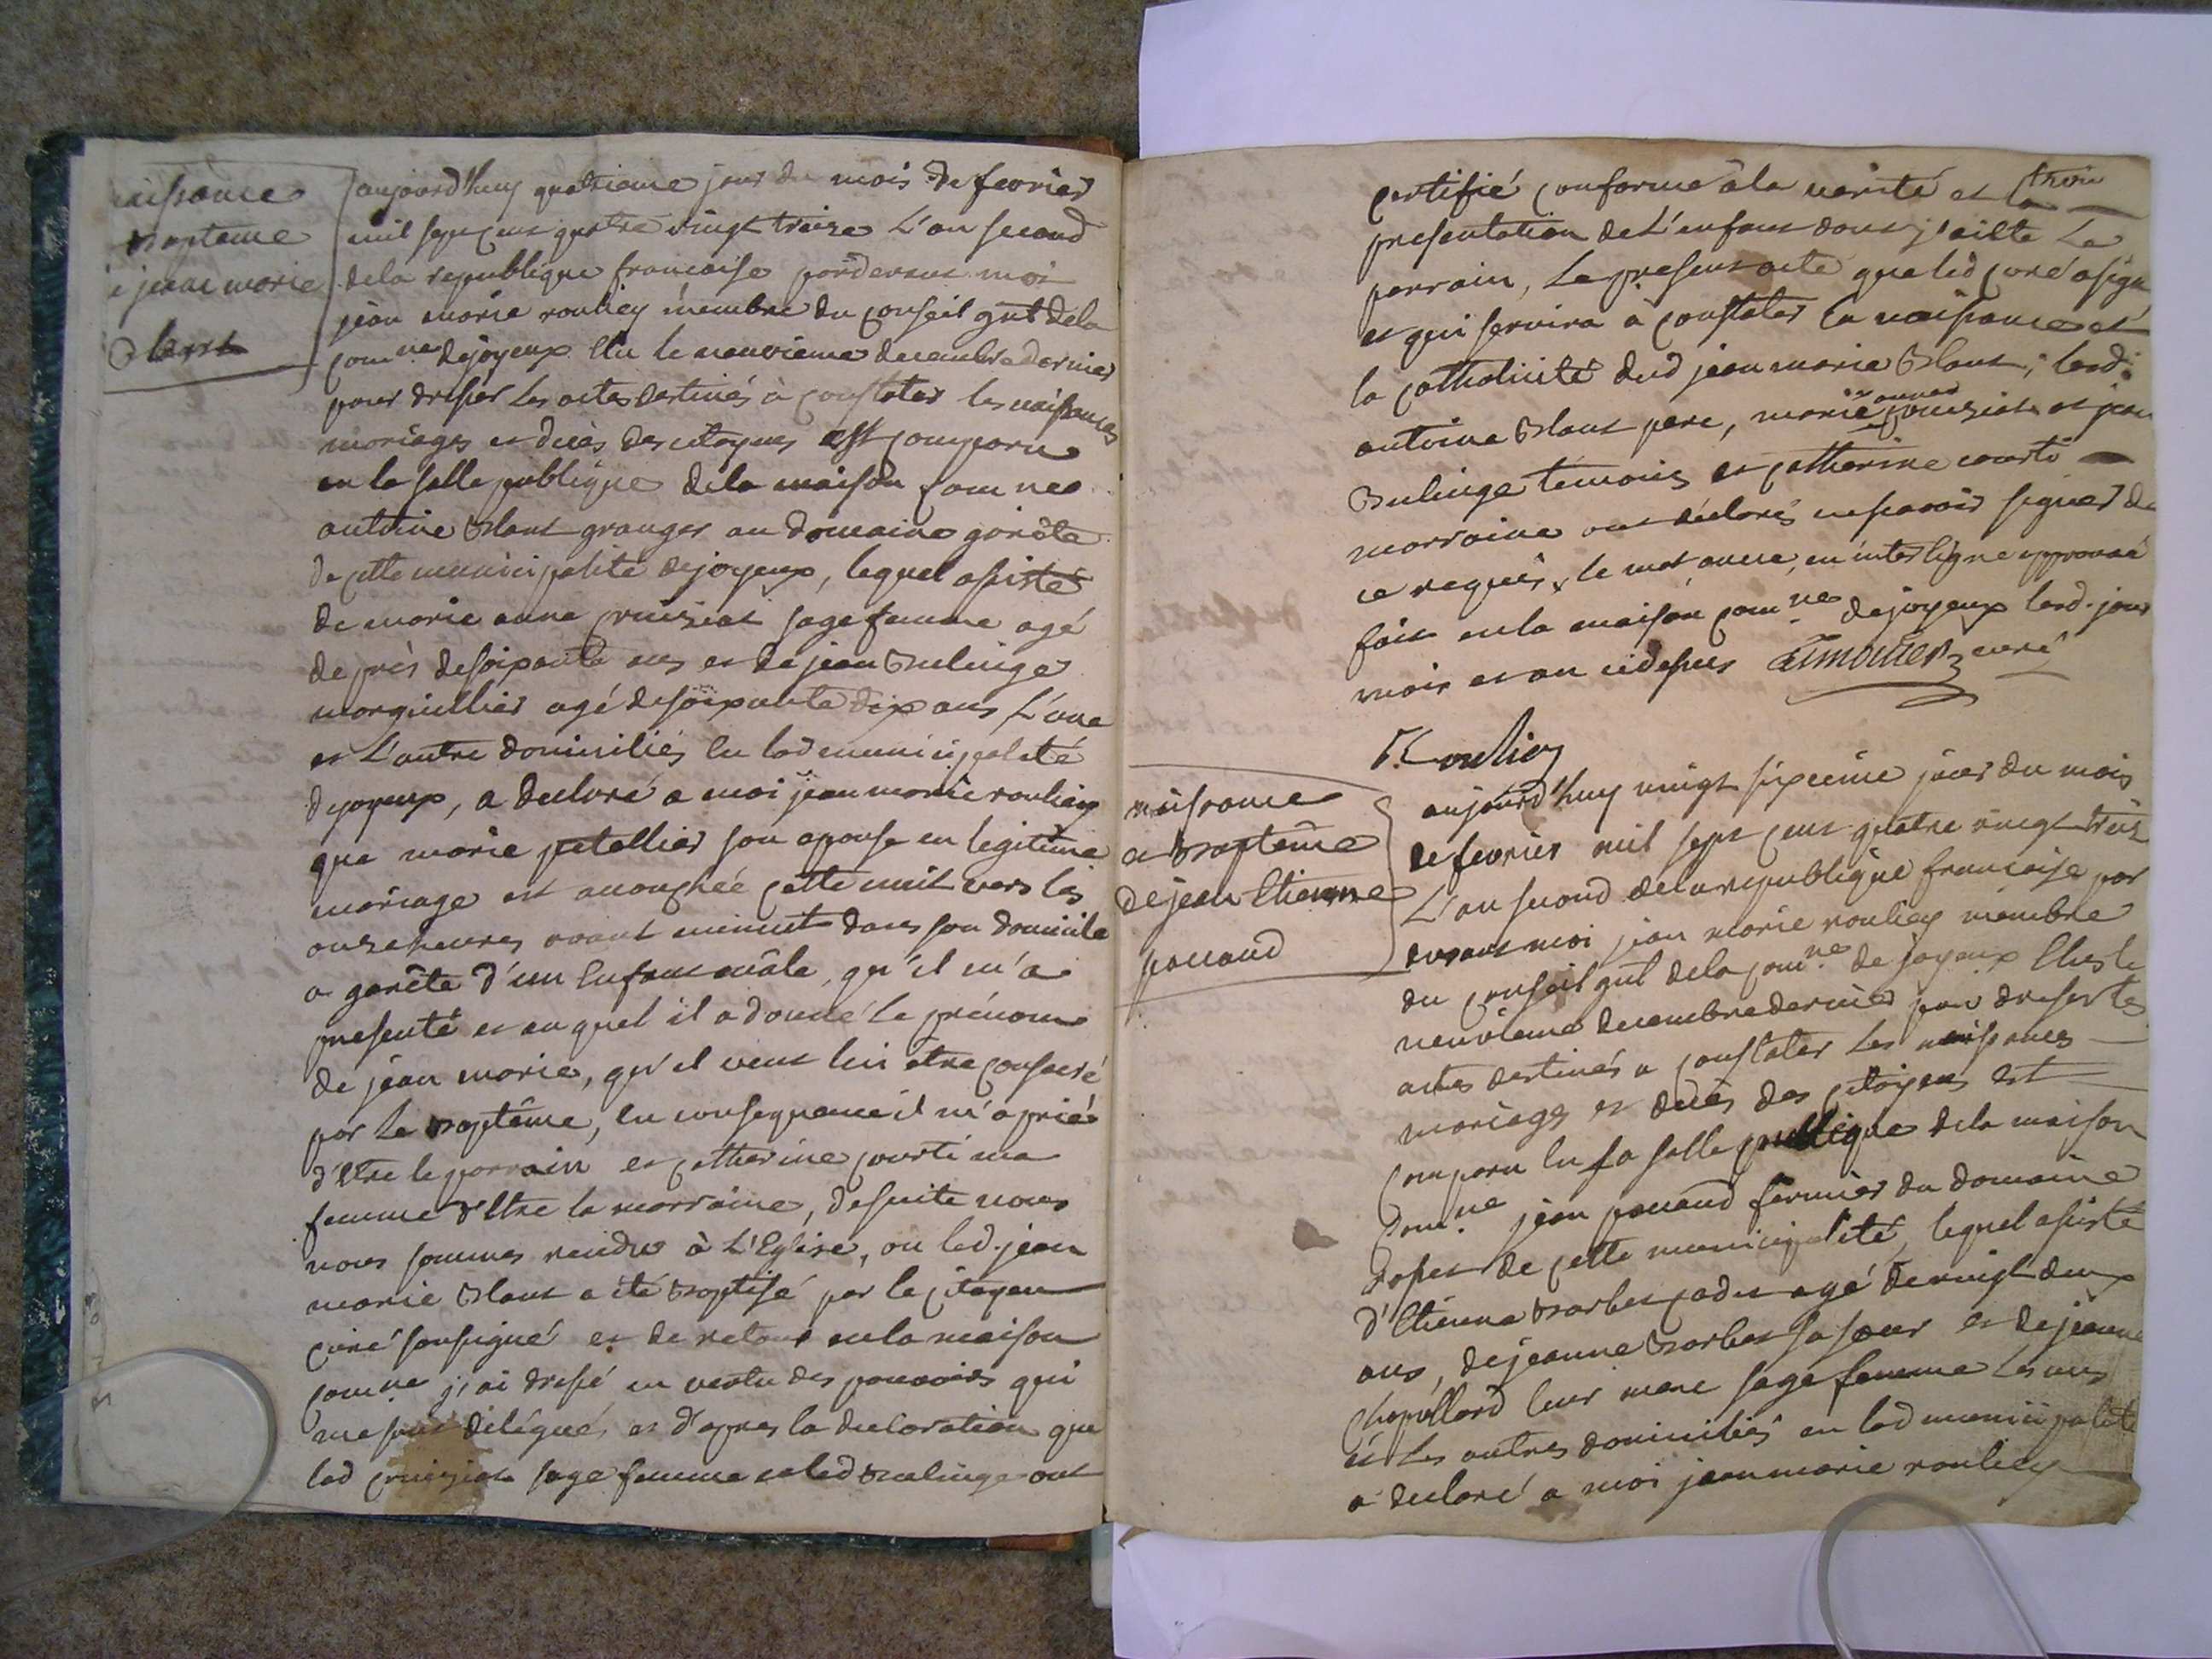 naissance
bapteme
e jean marie
blant
aujourd'huy quatrieme jour du mois de fevrier
mil sept cent quatre vingt treize L'an second
dela republique francaise pardevant moi
jean marie rouliey membre du conseil gnl dela
com.ne dejoyeux Elu le neuvieme decembre dernier
pour dresser les actes destinés à constater les naissances
mariages et decès des citoyens est comparu
en la salle publique dela maison com.ne
antoine blant granger au domaine garête
de cette municipalité dejoyeux, lequel assisté
de marie anne cruiziat sage femme agé
de près desoixante ans et de jean bulinge
marguillier agé desoixante dix ans L'une
et L'autre domiciliés En lad municipalité
dejoyeux, a declaré a moi jean marie rouliey
que marie petellier son epouse en legitime
mariage est accouchée cette nuit vers les
onze heures avant minuit dans son domicile
a garête d'un Enfant mâle, qu'il m'a
presenté et auquel il a donné le prénom
de jean marie, qu'il veut lui etre consacré
par le baptême, En consequence il m'a prié
d'Etre le parrain et catherine courti ma
femme d'Etre la marraine, desuite nous
nous sommes rendus à L'Eglise, ou led. jean
marie blant a été baptisé par le citoyen
curé soussigné et de retour en la maison
com.ne j'ai dressé en vertu des pouvoirs qui
me sont délégués et d'apres la declaration que
lad cruiziat sage femme et led bulinge ont
certifié conforme à la verité et la
presentation de L'enfant dont j'ai été le
parrain, le present acte que led curé a signé
et qui servira a constater la naissance et
la catholicité dud jean marie blant; lesd.
antoine blant pere, marie anne cruiziat et jean
bulinge temoins et catherine courti
marraine ont déclarés ne savoir signer de
ce requis, le mot anne, en interligne approuvé
fait en la maison com.ne dejoyeux lesd. jour
mois et an cidessus curé
Rouliey
naissance
et baptême
de jean Etienne
pauand
aujourd'huy vingt sixieme jour du mois
de fevrier mil sept cent quatre vingt treize
L'an second dela republique francaise par
devant moi jean marie rouliey membre
du conseil gnl dela com.ne de joyeux Elu le
neuvieme decembre dernier pour dresser les
actes destinés a constater les naissances
mariages et decès des citoyens est
comparu En la salle publique dela maison
com.ne jean pauand fermier du domaine
de cette municipalité, lequel assisté
d'Etienne barbet cadet agé de vingt deux
ans, dejeanne barbet sa sœur et dejeanne
chapellard leur mere sage femme les uns
et les autres domiciliés en lad municipalité
a declaré a moi jean marie rouliey